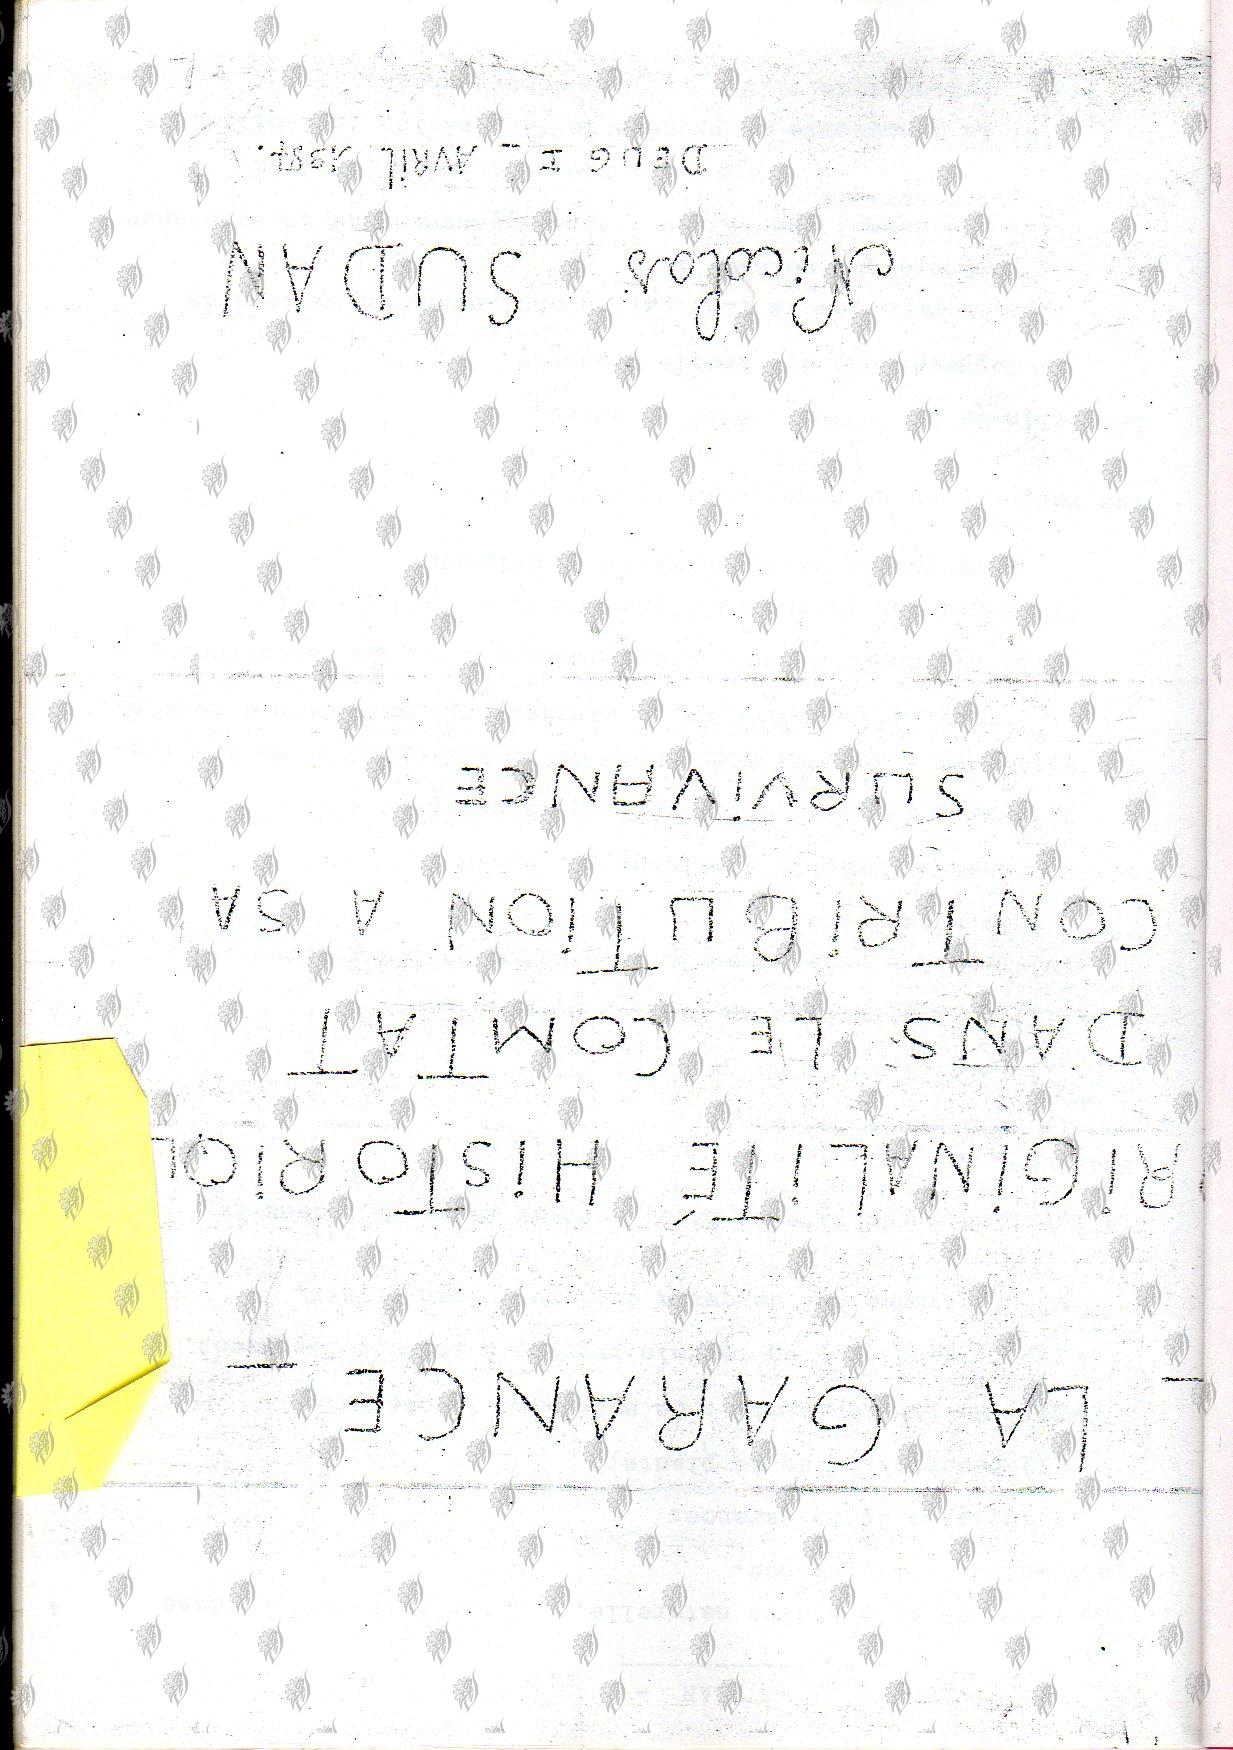 _ LA GARANCE _
RIGINALITÉ HISTORIQU
DANS LE COMTAT
CONTRIBUTION A SA
SURVIVANCE
Nicolas SUDAN
DEUG I _ AVRIL